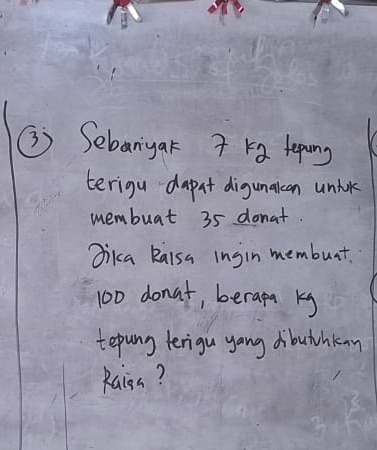 3) Sebanyak 7 kg tepung
terigu dapat digunakan untuk
membuat 35 donat.
Jika Raisa ingin membuat
100 donat, berapa kg
tepung terigu yang dibutuhkan
Raisa?